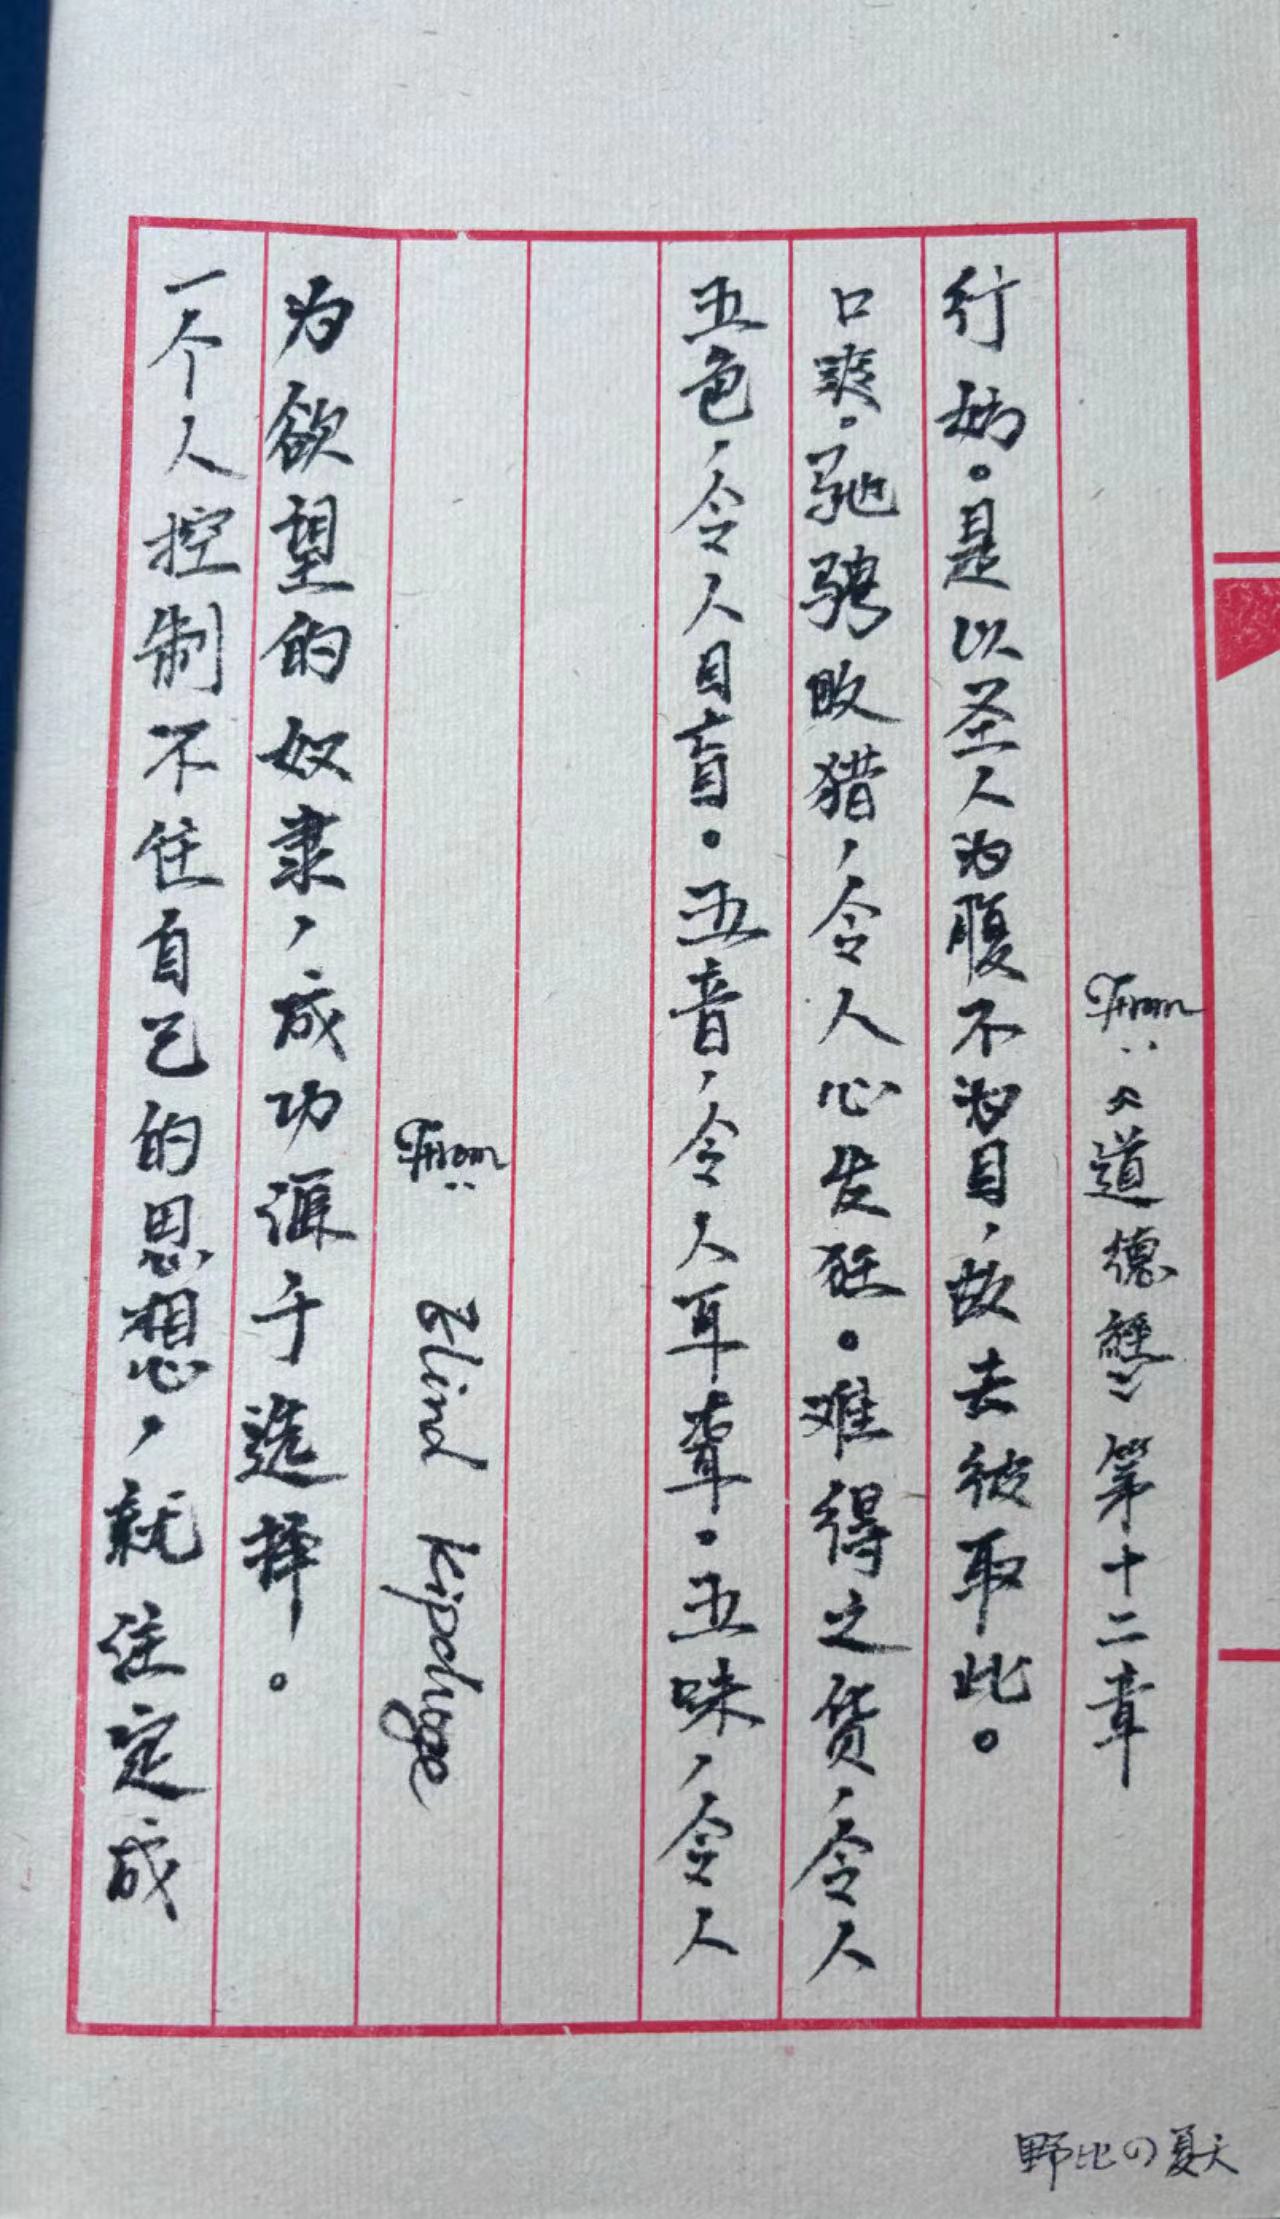 一个人控制不住自己的思想，就注定成
为欲望的奴隶，成功源于选择。
From: Elind Kipchoge
五色，令人目盲。五音，令人耳聋。五味，令人
口爽。驰骋畋猎，令人心发狂。难得之货，令人
行妨。是以圣人为腹不为目，故去彼取此。
From:《道德經》第十二章
野比の夏天